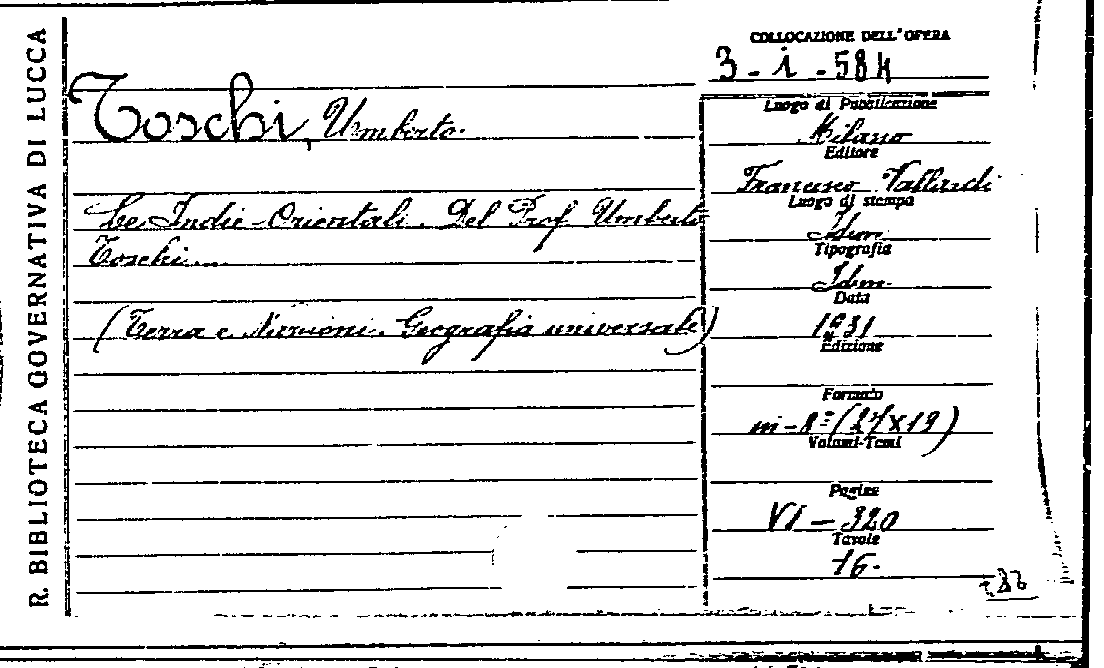 R. BIBLIOTECA GOVERNATIVA DI LUCCA
Toschi, Umberto.
Le Indie-Orientali. Del Prof. Umberto
Toschi....
(Terra e Nazioni. Geografia universale)
COLLOCAZIONE DELL'OPERA
3-i-584
Luogo di Pubblicazione
Milano
Editore
Francesco Vallardi
Luogo di stampa
Idem
Tipografia
Idem
Data
1931
Edizione
Formato
in-8º (27x19)
Volumi-Tomi
Pagine
VI-320
Tavole
16.